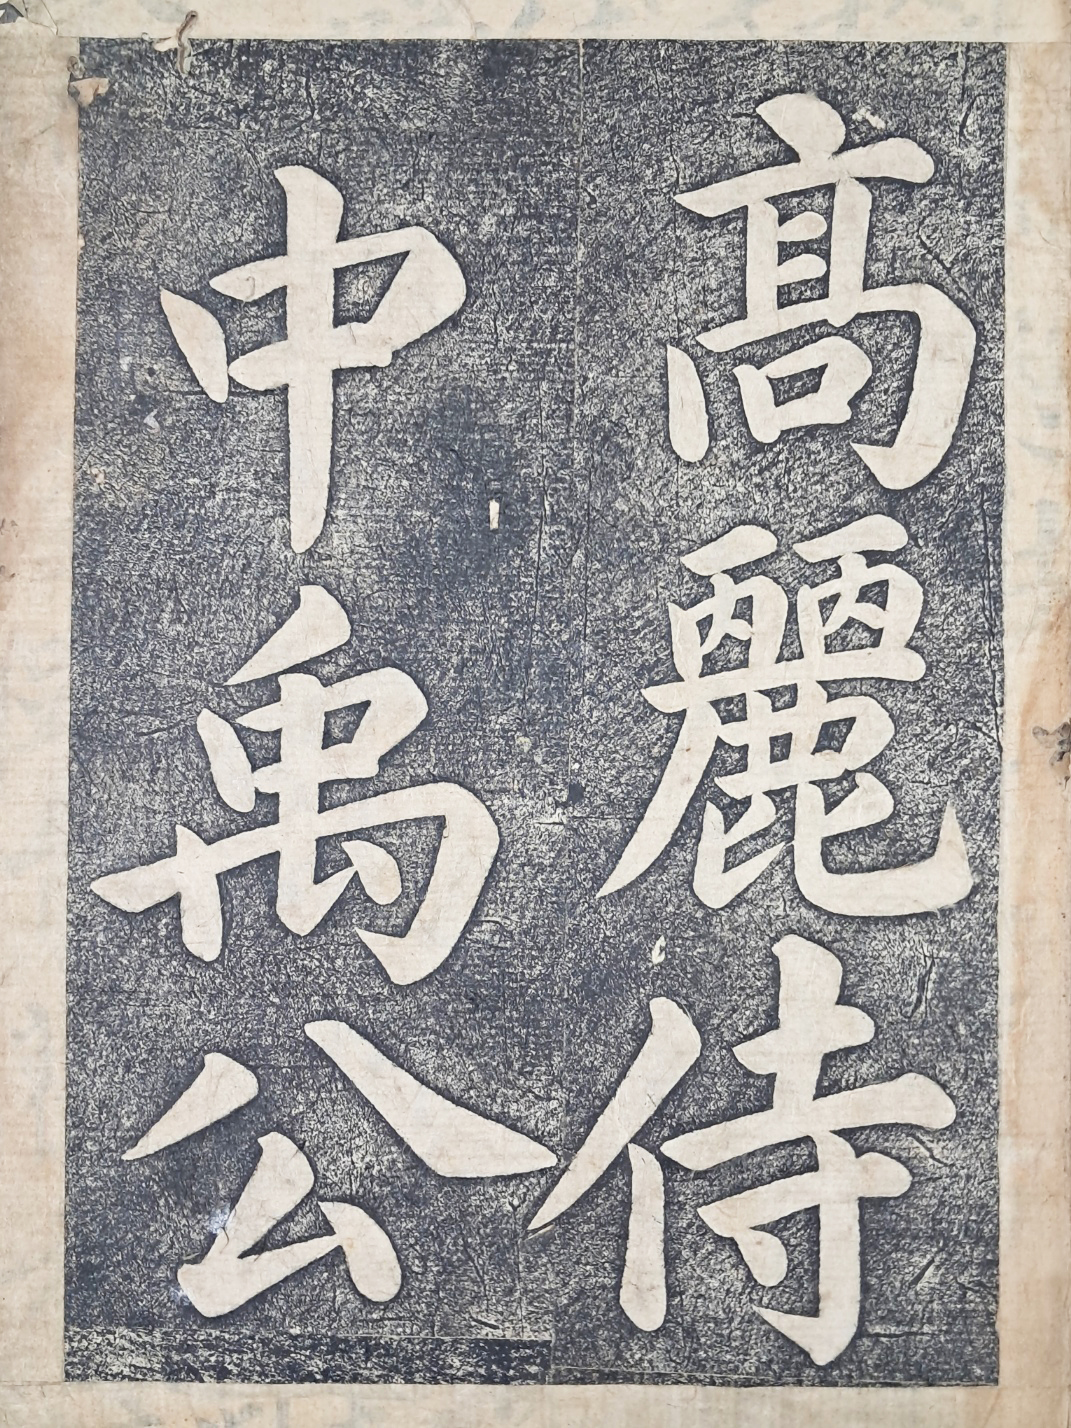 高麗侍
中禹公